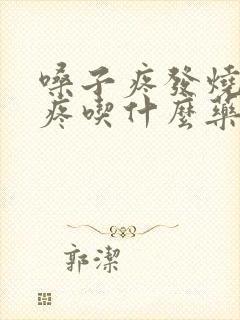 嗓子疼發燒
疼喫什麼藥
郭潔